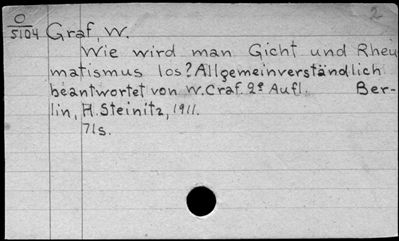 2
O
5104 Graf, W.
Wie wird man Gicht und Rheu
matismus los? Allgemeinverständlich
beantwortet von W. Craf. 2e Aufl. Ber-
lin, H. Steinitz, 1911.
71s.